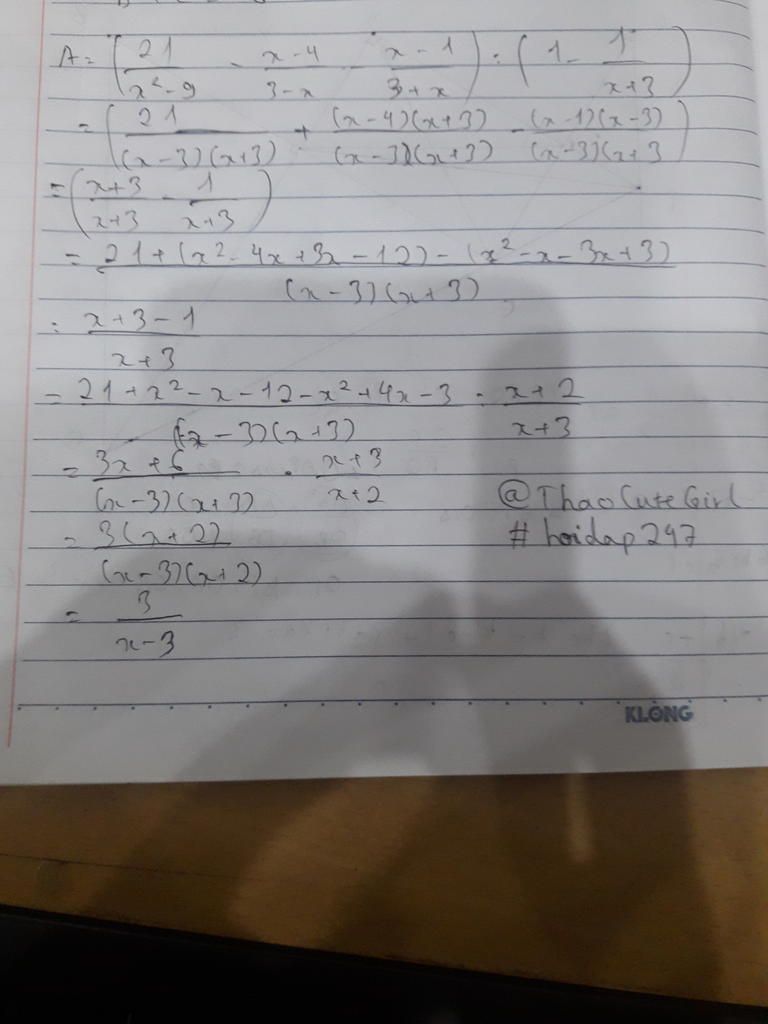 A = (21/(x²-9) - (x-4)/(3-x) - (x-1)/(3+x)) : (1 - 1/(x+3))
= (21/((x-3)(x+3)) + ((x-4)(x+3))/((x-3)(x+3)) - ((x-1)(x-3))/((x-3)(x+3))
= ((x+3)/(x+3) - 1/(x+3))
= (21+(x²-4x+3x-12)-(x²-x-3x+3))/((x-3)(x+3))
: (x+3-1)/(x+3)
= (21+x²-x-12-x²+4x-3)/((x-3)(x+3)) : (x+2)/(x+3)
= (3x+6)/((x-3)(x+3)) . (x+3)/(x+2)
@ThaoCuteGirl
= (3(x+2))/((x-3)(x+2))
#hoidap247
= 3/(x-3)
KLONG